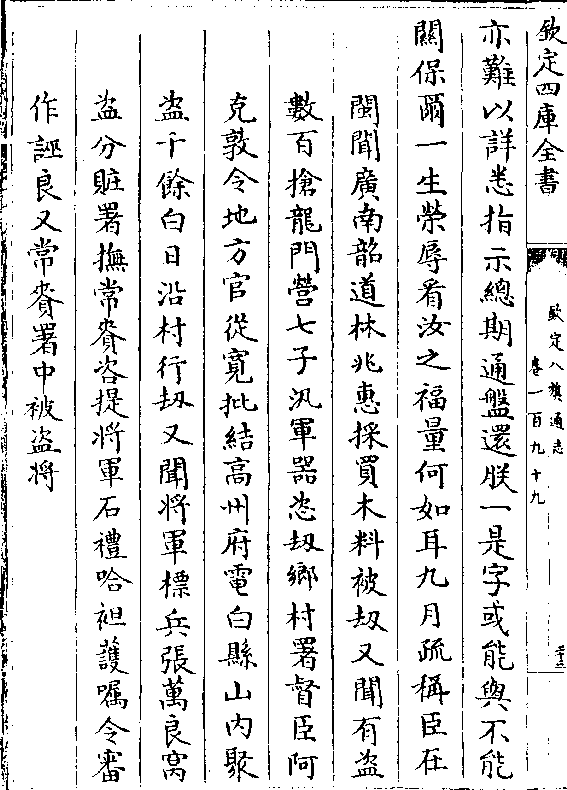 欽定四庫全書
欽定八旗通志
卷一百九十九
亦難以詳悉指示總期通盤還朕一是字或能與不能
關保爾一生榮辱看汝之福量何如耳九月疏稱臣在
閩聞廣南韶道林兆惠採買木料被刼又聞有盜
數百搶龍門營七子汛軍器恣刼鄉村署督臣阿
克敦令地方官從寬批結高州府電白縣山內聚
盗千餘白日沿村行刼又聞將軍標兵張萬良窩
盗分贓署撫常賚咨提將軍石禮哈袒護嘱令審
作誣良又常賚署中被盗將